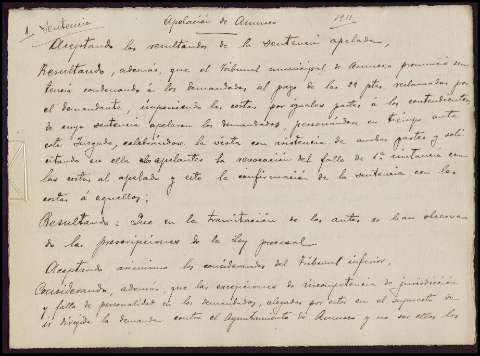 1 Sentencia
Apelación de Amurrio 1911
Aceptando los resultandos de la sentencia apelada,
Resultando, además, que el Tribunal municipal de Amurrio pronunció sen-
tencia condenando á los demandados al pago de las 29 ptas. reclamadas por
el demandante, imponiendo las costas por iguales partes á los contendientes
de cuya sentencia apelaron los demandados, personándose en tiempo ante
este Juzgado, celebrándose la vista con asistencia de ambas partes y soli
citando en ella los apelantes la revocación del fallo de 1ª instancia con
las costas al apelado y este la confirmación de la sentencia con las
costas á aquellos;
Resultando: Que en la tramitación de los autos se han observa
do las prescripciones de la Ley procesal
Aceptando asimismo los considerandos del Tribunal inferior.
Considerando, además, que las excepciones de incompetencia de jurisdicción
y falta de personalidad en los demandados, alegadas por estos en el supuesto de
ir dirigida la demanda contra el Ayuntamiento de Amurrio y no ser ellos los